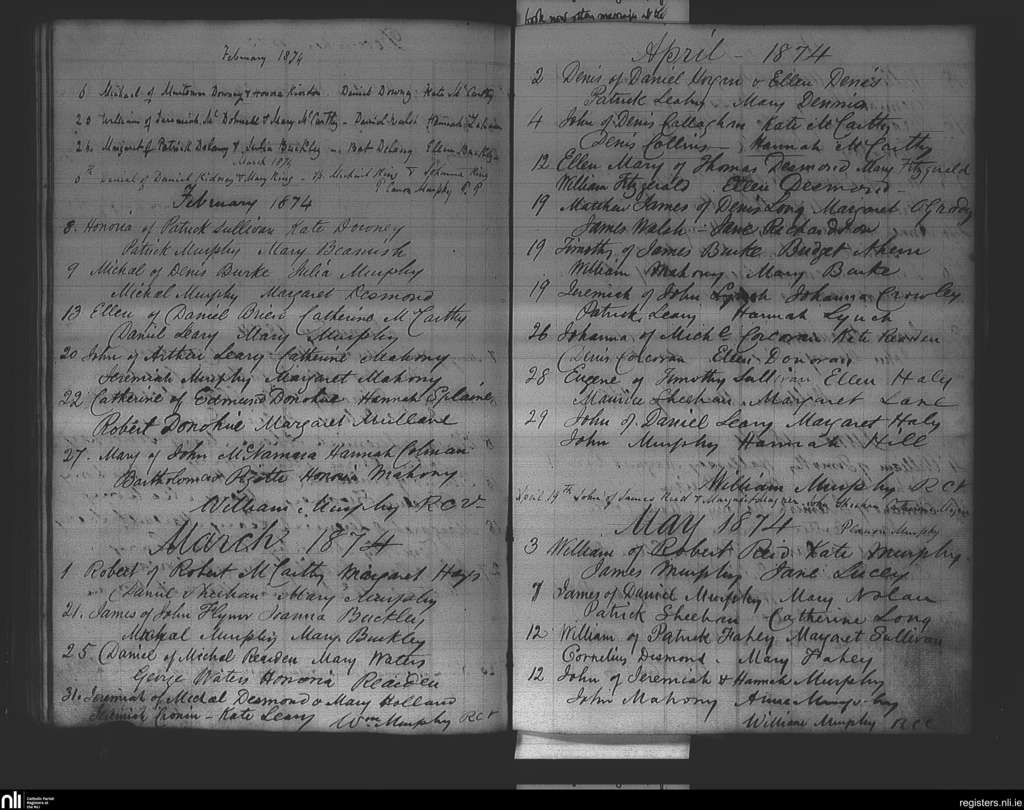 February 1874
6 Michael of Downey & Honora Daniel Downey Kate McCarthy
20 William of Jeremiah McDonnell & Mary McCarthy - David Walsh Hannah
26. Margaret of Patrick Delany & Julia Buckley - Bat Delany Ellen Buckley
March 1874
Daniel of Daniel Kidney & Mary King - Michael King & Johanna King
P Canon Murphy P.P.
February 1874
8. Honoria of Patrick Sullivan Kate Downey
Patrick Murphy Mary Beamish
9 Michal of Denis Burke Julia Murphy
Michal Murphy Margaret Desmond
13 Ellen of Daniel Brien Catherine McCarthy
Daniel Leary Mary Murphy
20 John of Arthur Leary Catherine Mahony
Jeremiah Murphy Margaret Mahony
22 Catherine of Edmund Donohue Hannah Splaine
Robert Donohue Margaret Mullane
27. Mary of John McNamara Hannah Colman
Bartholomew Honoria Mahony
William Murphy RCC
March 1874
1 Robert of Robert McCarthy Margaret Hays
Daniel Sheehan Mary Murphy
21. James of John Flynn Joanna Buckley
Michal Murphy Mary Buckley
25 Daniel of Michal Rearden Mary Waters
George Waters Honoria Rearden
31. Jeremiah of Michal Desmond & Mary Holland
Jeremiah Cronin - Kate Leary Wm Murphy RCC
took now other marriages at the
April - 1874
2 Denis of Daniel Horgan & Ellen Denis
Patrick Leahy Mary Dennis
4 John of Denis Callaghan Kate McCarthy
Denis Collins - Hannah McCarthy
12 Ellen Mary of Thomas Desmond Mary Fitzgerald
William Fitzgerald Ellen Desmond -
19 Matthew James of Denis Long Margaret OGrady
James Walsh - Jane Richardson
19 Timothy of James Burke Bridget Ahern
William Mahony Mary Burke
19 Jeremiah of John Lynch Johanna Crowley
Patrick Leary Hannah Lynch
26 Johanna of Michl Corcoran Kate Rearden
Denis Corcoran Ellen Donovan
28 Eugene of Timothy Sullivan Ellen Haly
Maurice Sheehan Margaret Lane
29 John of Daniel Leary Margaret Haly
John Murphy Hannah Hill
William Murphy RCC
April 19th John of James & Margaret John Sheehan
P Canon Murphy
May 1874
3 William of Robert Reid Kate Murphy
James Murphy Jane Lucey
7 James of Daniel Murphy Mary Nolan
Patrick Sheehan Catherine Long
12 William of Patrick Fahey Margaret Sullivan
Cornelius Desmond. Mary Fahey
12 John of Jeremiah & Hannah Murphy
John Mahony Anne
William Murphy RCC
nli
Catholic Parish
Registers at
the NLI
registers.nli.ie